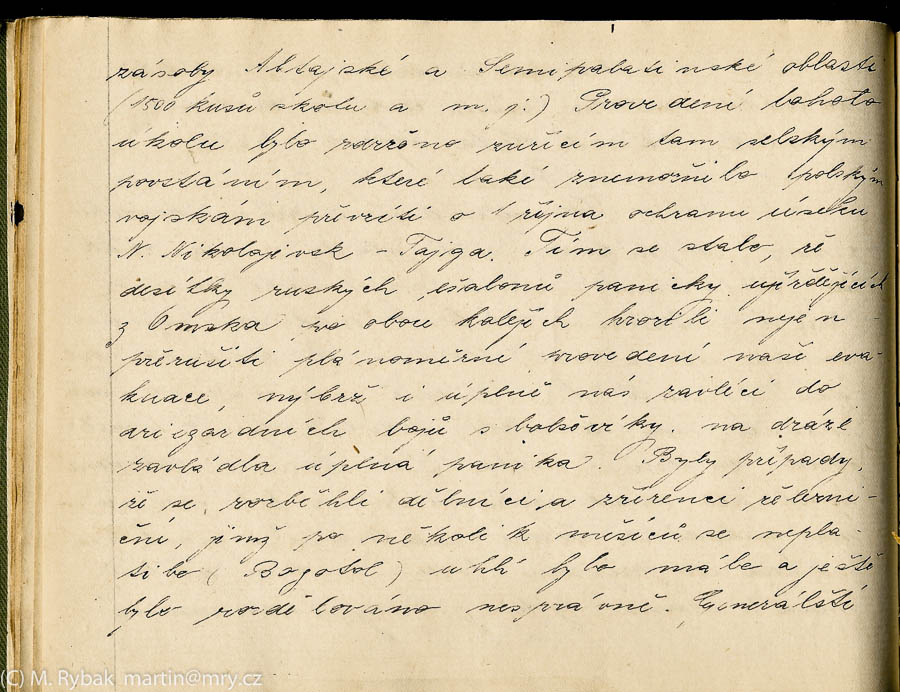 zásoby Altajské a Semipalatinské oblasti
(1500 kusů skotu a m. j.) Provedení tohoto
úkolu bylo zdrženo zuřícím tam selským
povstáním, které také znemožnilo polským
vojskám převzíti o 1 října ochranu úseku
N. Nikolajevsk - Tajga. Tím se stalo, že
desítky ruských ešalonů panicky ujíždějících
z Omska po obou kolejích hrozili nejen
přerušiti plánoměrné provedení naší eva-
kuace, nýbrž i úplně nás zavléci do
ariegardních bojů s bolševíky. na dráze
zavládla úplná panika. Byly případy,
že se rozběhli dělníci a zřízenci železni-
ční, jimž po několik měsíců se nepla-
tilo (Bogotol) uhlí bylo málo a ještě
bylo rozdělováno nesprávně. Generálští
(C) M. Rybak martin@mry.cz